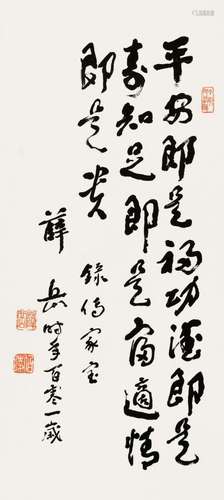 平安即是福功德即是
壽知足即是富適情
即是貴
錄傳家寶
薛岳時年百零一歲